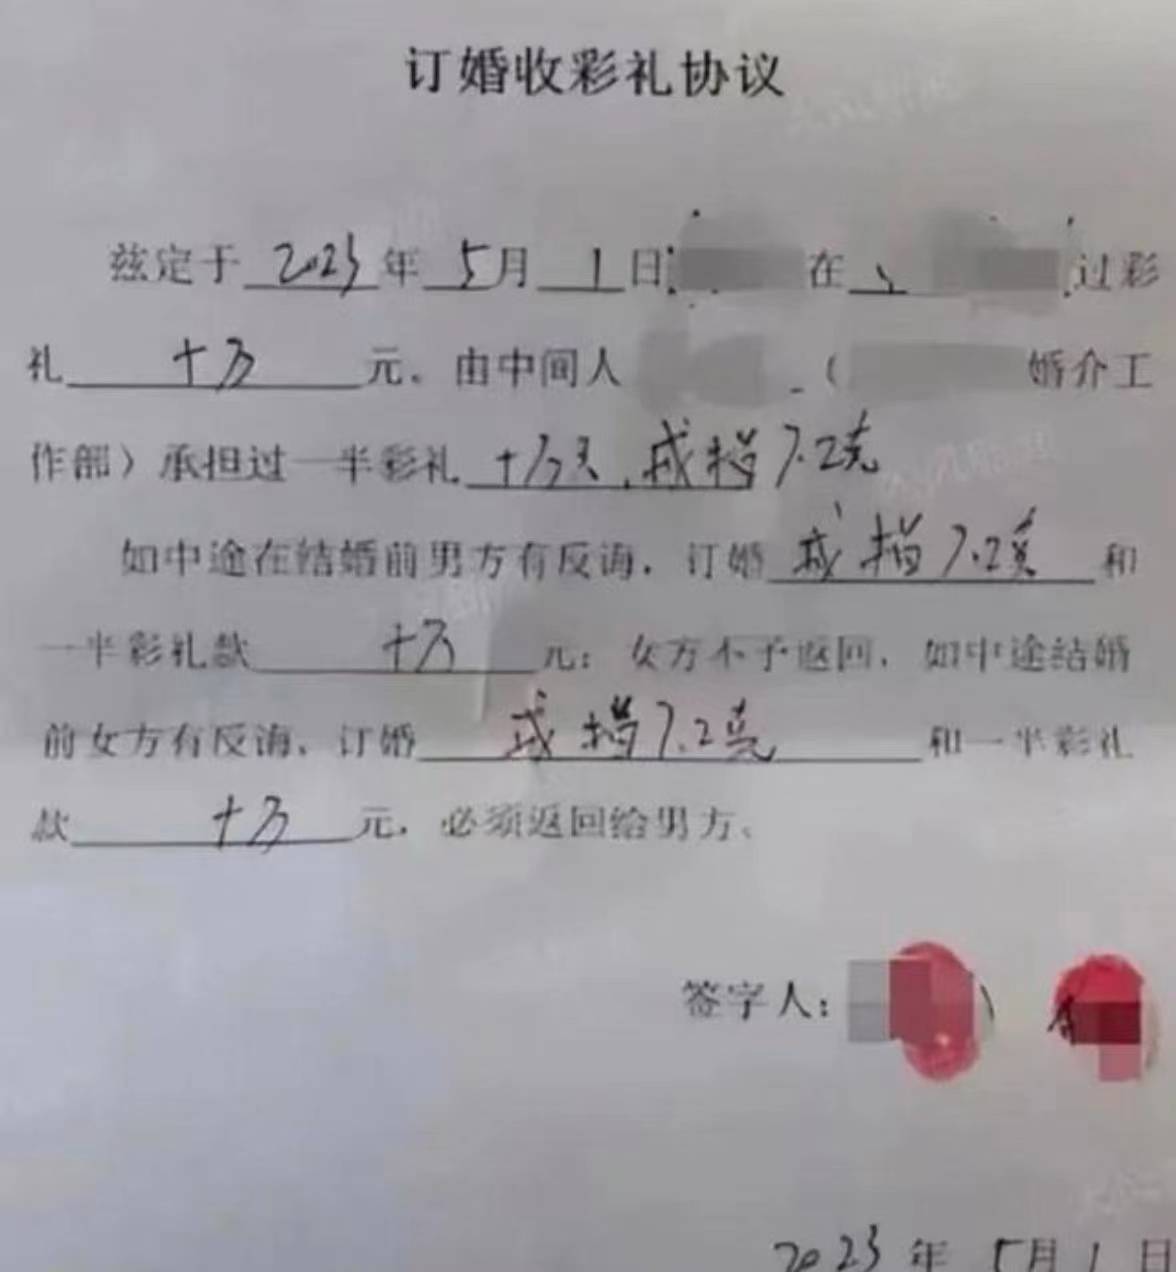 订婚收彩礼协议
兹定于 2023 年 5 月 1 日 在 过彩
礼 十万 元。由中间人 ( 婚介工
作部）承担过一半彩礼 十万元，戒指7.2克
如中途在结婚前男方有反诲，订婚 戒指7.2克 和
一半彩礼款 十万 元；女方不予返回，如中途结婚
前女方有反诲，订婚 戒指7.2克 和一半彩礼
款 十万 元，必须返回给男方、
签字人：
2023 年 5月 1 日